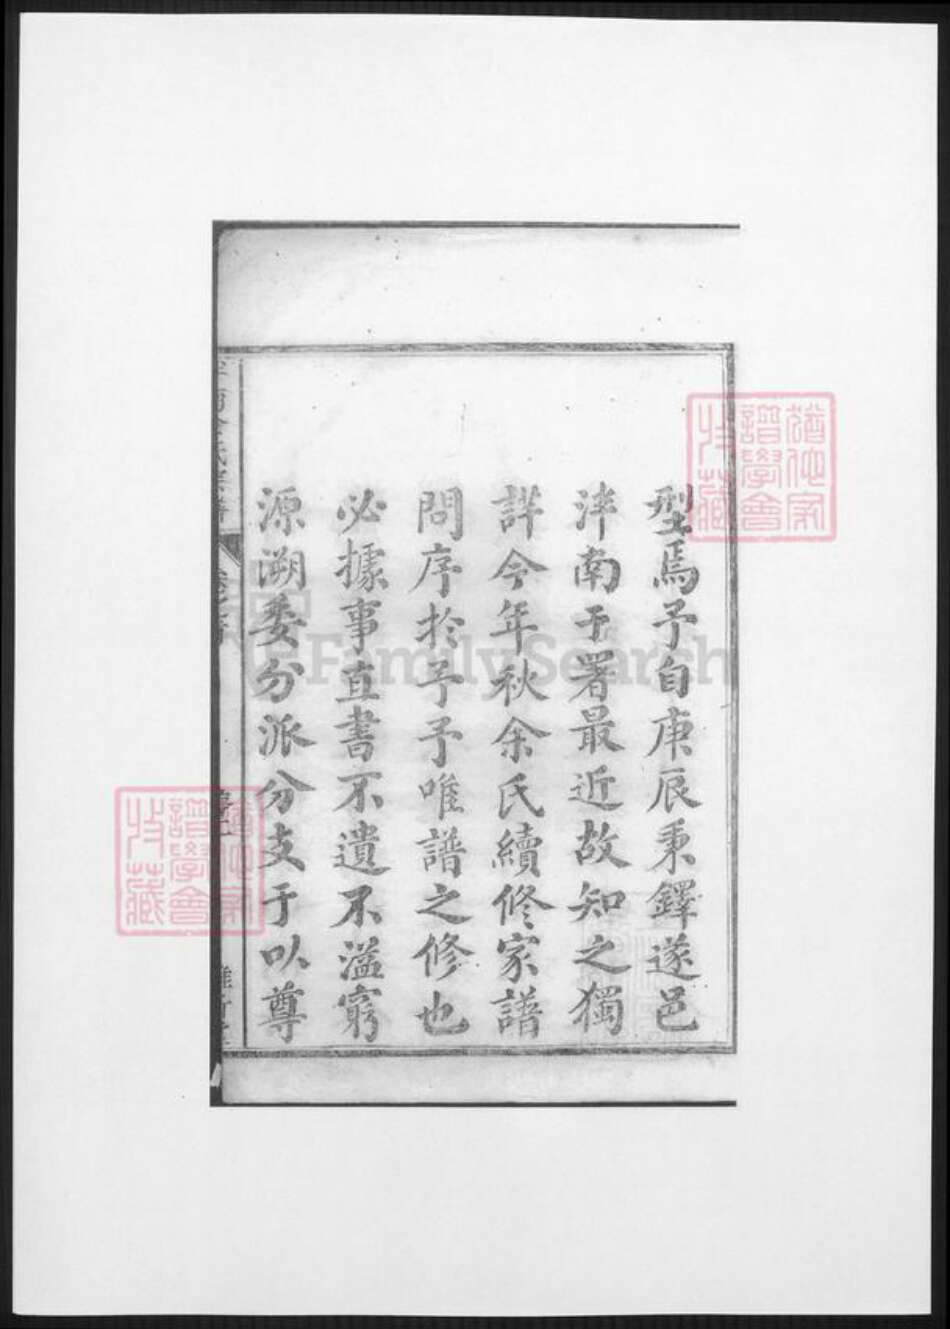 型焉予自庚辰秉鐸遂邑
泮南于署最近故知之獨
詳今年秋余氏續修家譜
問序於予予唯譜之修也
必據事直書不遺不溢窮
源溯委分派分支于以尊
余氏宗譜
卷之首
猶他家譜學會收藏
猶他家譜學會收藏
FamilySearch